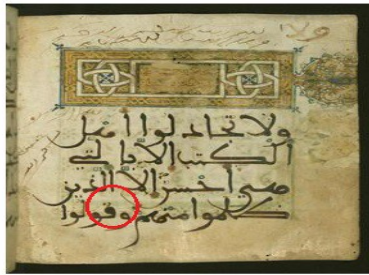 ولا تجادلوا أهل
الكتب إلا بالتي
هي أحسن إلا الذين
ظلموا منهم وقولوا